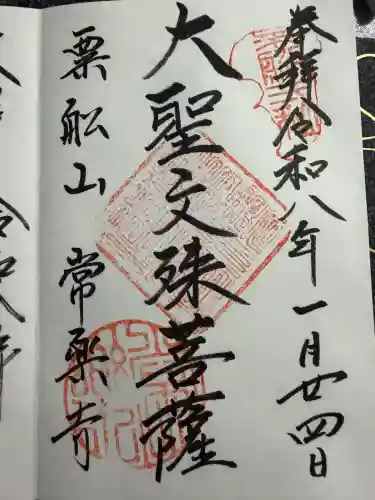 奉拝 令和八年一月廿四日
大聖文殊菩薩
粟船山 常楽寺